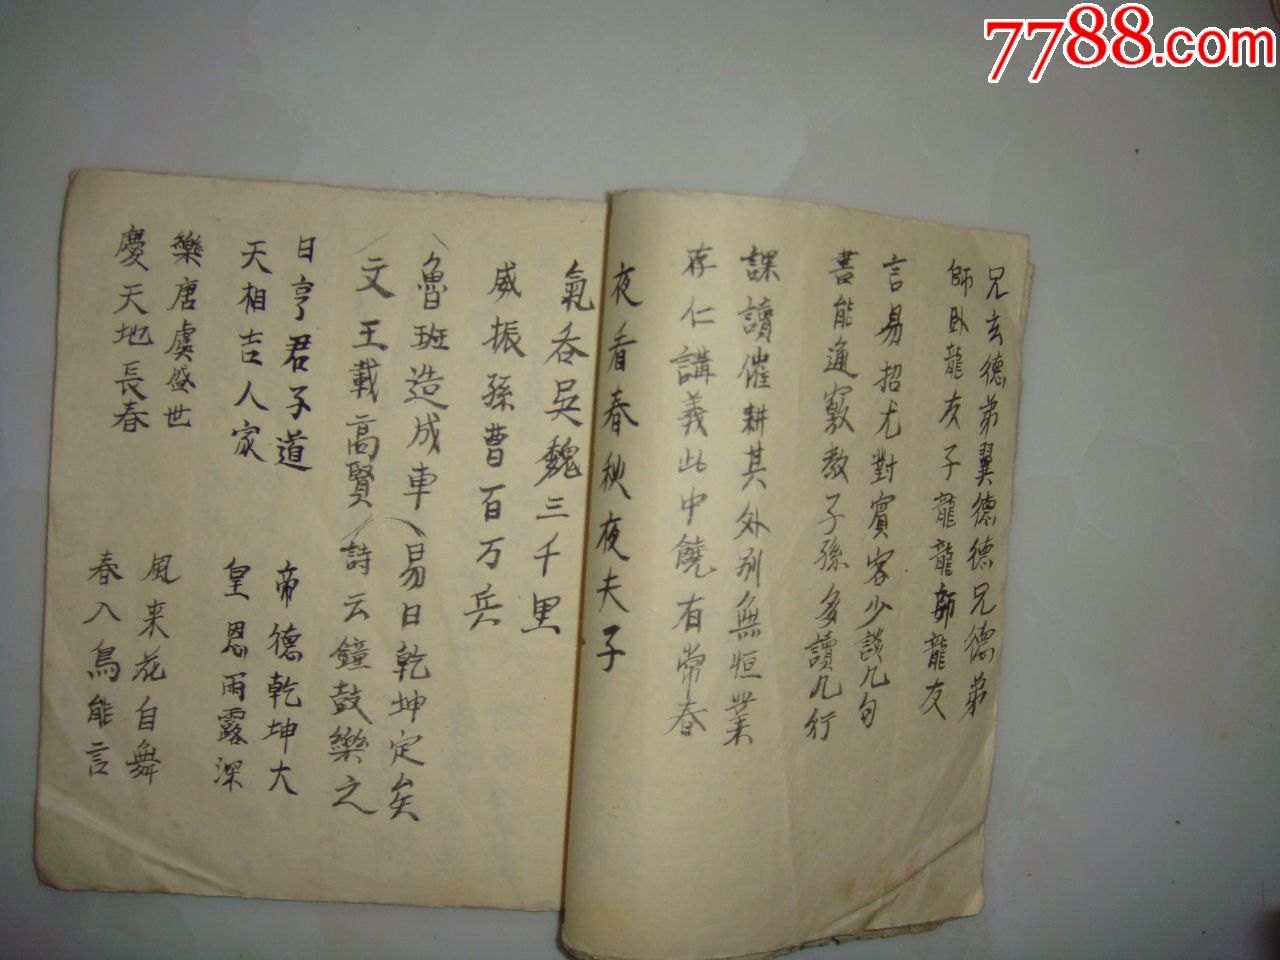 7788.com
兄玄德弟翼德德兄德弟
師卧龍友子龍龍師龍友
言易招尤對賓客少談几句
書能通竅教子孫多讀几行
課讀催耕其外别無恒業
存仁講義此中饒有常春
夜看春秋夜夫子
氣吞吳魏三千里
威振孫曹百万兵
魯班造成車
易曰乾坤定矣
文王載高賢
詩云鐘鼓樂之
日亨君子道
天相吉人家
帝德乾坤大
皇恩雨露深
樂唐虞盛世
慶天地長春
風来花自舞
春入鳥能言